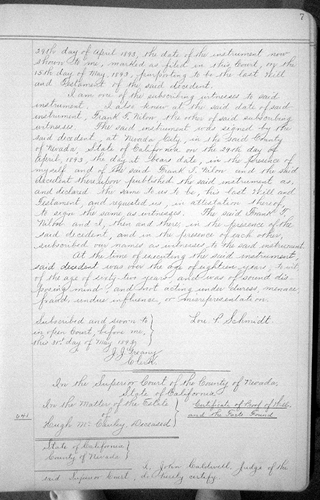 7
29th day of April 1893, the date of the instrument now
shown to me, marked as filed in this Court, on the
15th day of May, 1893, purporting to be the last Will
and Testament of the said decedent.
I am one of the subscribing witnesses to said
instrument. I also knew at the said date of said
instrument, Grant T. the other of said subscribing
witnesses. The said instrument was signed by the
said decedent, at Nevada City, in the said County
of Nevada, State of California on the 29th day of
April, 1893, the day it bears date, in the presence of
myself and of the said Grant T. and the said
decedent thereupon published the said instrument as,
and declared the same to us to be, his last Will and
Testament, and requested us, in attestation thereof
to sign the same as witnesses. The said Grant T.
and I, then and there, in the presence of the
said decedent, and in the presence of each other,
subscribed our names as witnesses to the said instrument.
At the time of executing the said instrument,
said decedent was over the age of eighteen years, to wit,
of the age of sixty two years, and was of sound dis-
posing mind, and not acting under duress, menace
fraud, undue influence, or misrepresentation.
Subscribed and sworn to
in open Court, before me,
this day of May 1893
Lou. P. Schmidt.
J. J. Greany
Clerk
In the Superior Court of the County of Nevada,
State of California
In the Matter of the Estate
of
Hugh Mc Deceased
Certificate of Proof of Will
and the Facts Found
State of California
County of Nevada
I, John Caldwell, Judge of the
said Superior Court, do hereby certify